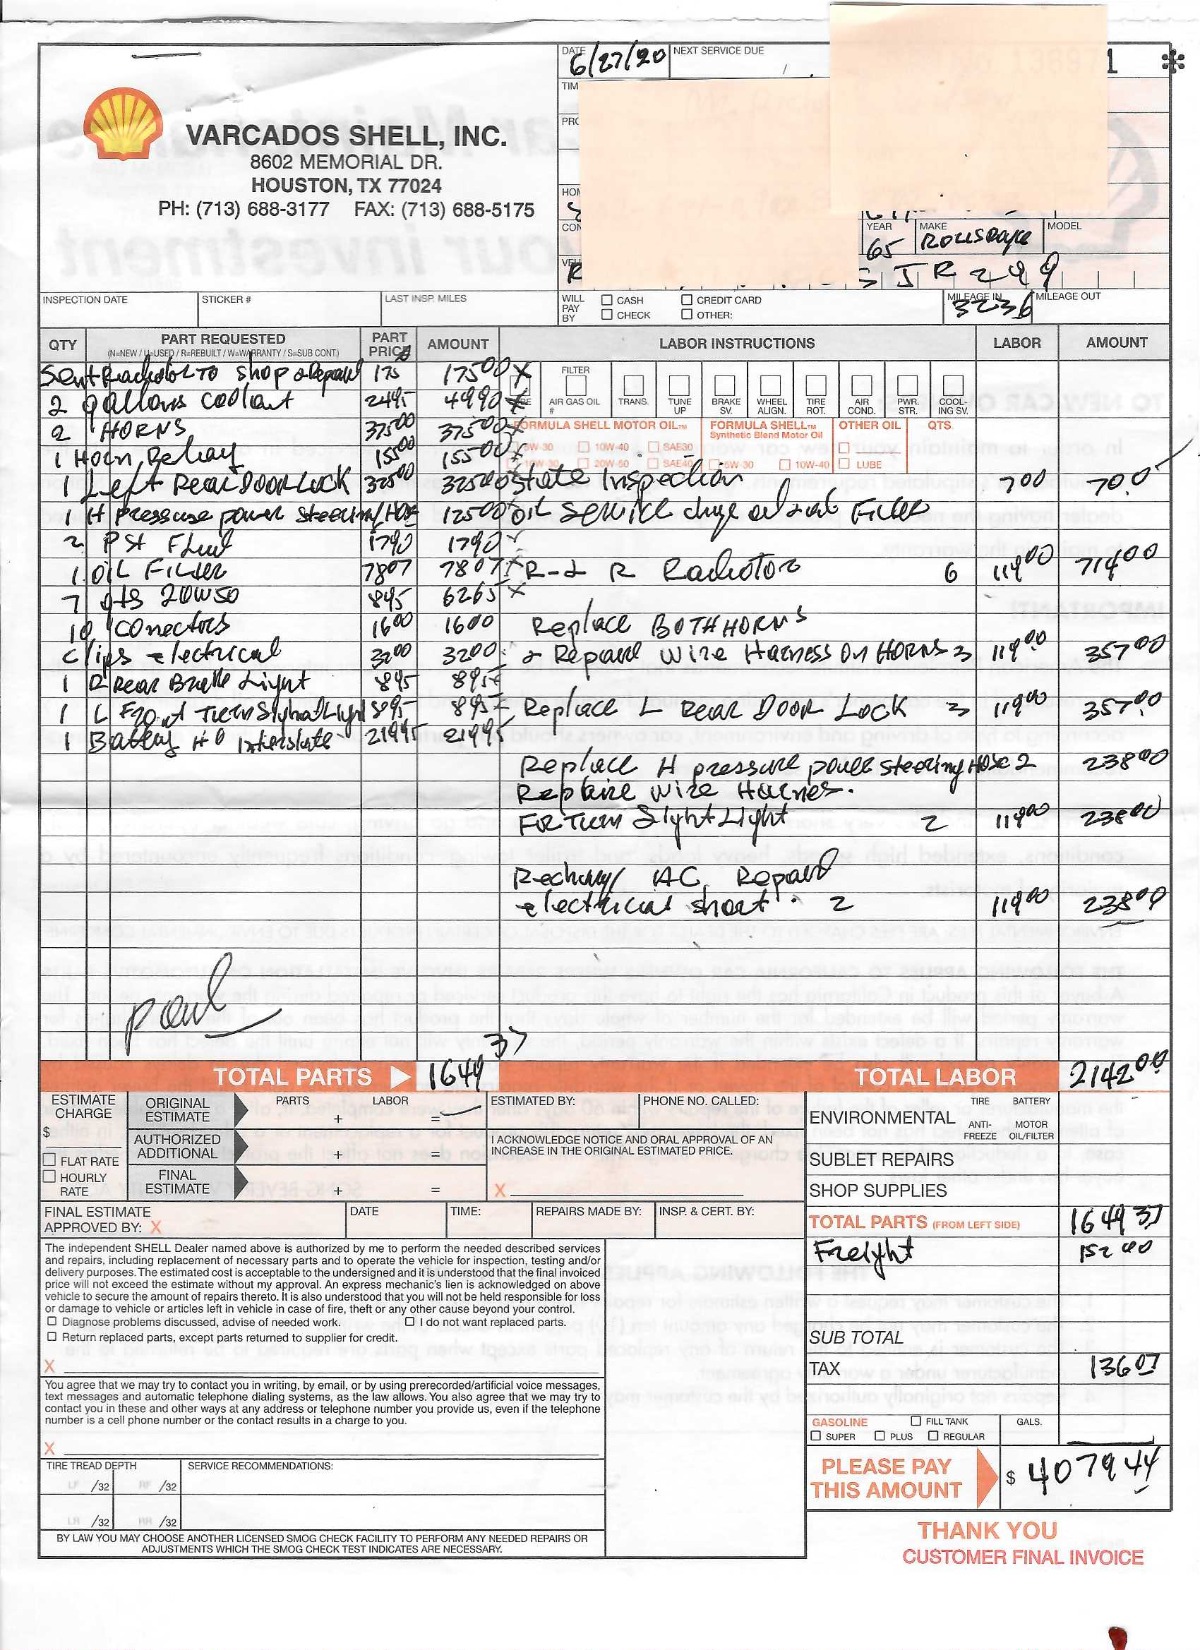 DATE 6/27/20 NEXT SERVICE DUE 1 *
TIM
VARCADOS SHELL, INC.
PRO
8602 MEMORIAL DR.
HOUSTON, TX 77024
PH: (713) 688-3177 FAX: (713) 688-5175
HOM
CON
YEAR 65 MAKE MODEL
VEH
J R 299
INSPECTION DATE STICKER # LAST INSP. MILES WILL PAY BY CASH CREDIT CARD CHECK OTHER: MILEAGE IN 3236 MILEAGE OUT
QTY PART REQUESTED PART PRICE AMOUNT LABOR INSTRUCTIONS LABOR AMOUNT
(N=NEW / U=USED / R=REBUILT / W=WARRANTY / S=SUB CONT.)
Sent Radiotor TO shop & Repard 175 17500 x
FILTER
AIR GAS OIL # TRANS. TUNE UP BRAKE SV. WHEEL ALIGN. TIRE ROT. AIR COND. PWR. STR. COOL-ING SV.
2 gallons coolant 2495 4990 x
FORMULA SHELL MOTOR OIL™ FORMULA SHELL™ Synthetic Blend Motor Oil OTHER OIL QTS.
5W-30 10W-40 SAE30
10W-30 20W-50 SAE40 5W-30 10W-40 LUBE
2 HORNS 37500 37500 x
1 Horn Relay 15500 15500 x
1 Left REAR DOOR LOCK 32500 32500 State Inspection 700 70.0
1 H Pressuse power Steering/Hose 12500 OIL SERVICE chge oil and Filter
2 PSt Fluid 1790 1790
1 OIL FILTER 7807 7807 x R-& R Radiotor 6 119.00 714.00
7 qts 20W50 895 6265 x
10 conectors 1600 1600 Replace BOTH HORNS
Clips electrical 3200 3200 & Repard Wire Harness On HORNS 3 119.00 357.00
1 R Rear Brake Light 895 895
1 L Front Turn Sighal Light 895 895 Replace L REAR DOOR LOCK 3 119.00 357.00
1 Battery H O Interstate 21995 21995
Replace H pressure power Steering Hose 2 238.00
Replaire wire Harnes.
FR Turn Sight Light 2 119.00 238.00
Rechary/ AC, Repard
electrical short 2 119.00 238.00
paul
TOTAL PARTS 1649 37 TOTAL LABOR 2142.00
ESTIMATE CHARGE $ FLAT RATE HOURLY RATE
ORIGINAL ESTIMATE PARTS + LABOR =
AUTHORIZED ADDITIONAL + =
FINAL ESTIMATE + =
ESTIMATED BY: PHONE NO. CALLED:
I ACKNOWLEDGE NOTICE AND ORAL APPROVAL OF AN INCREASE IN THE ORIGINAL ESTIMATED PRICE.
X
FINAL ESTIMATE APPROVED BY: X DATE TIME: REPAIRS MADE BY: INSP. & CERT. BY:
ENVIRONMENTAL TIRE BATTERY ANTI-FREEZE MOTOR OIL/FILTER
SUBLET REPAIRS
SHOP SUPPLIES
TOTAL PARTS (FROM LEFT SIDE) 1649 37
Freight 152 00
SUB TOTAL
TAX 136 07
GASOLINE FILL TANK GALS.
SUPER PLUS REGULAR
PLEASE PAY THIS AMOUNT $ 4079 44
The independent SHELL Dealer named above is authorized by me to perform the needed described services
and repairs, including replacement of necessary parts and to operate the vehicle for inspection, testing and/or
delivery purposes. The estimated cost is acceptable to the undersigned and it is understood that the final invoiced
price will not exceed the estimate without my approval. An express mechanic's lien is acknowledged on above
vehicle to secure the amount of repairs thereto. It is also understood that you will not be held responsible for loss
or damage to vehicle or articles left in vehicle in case of fire, theft or any other cause beyond your control.
Diagnose problems discussed, advise of needed work. I do not want replaced parts.
Return replaced parts, except parts returned to supplier for credit.
X
You agree that we may try to contact you in writing, by email, or by using prerecorded/artificial voice messages,
text messages and automatic telephone dialing systems, as the law allows. You also agree that we may try to
contact you in these and other ways at any address or telephone number you provide us, even if the telephone
number is a cell phone number or the contact results in a charge to you.
X
TIRE TREAD DEPTH SERVICE RECOMMENDATIONS:
LF /32 RF /32
LR /32 RR /32
BY LAW YOU MAY CHOOSE ANOTHER LICENSED SMOG CHECK FACILITY TO PERFORM ANY NEEDED REPAIRS OR
ADJUSTMENTS WHICH THE SMOG CHECK TEST INDICATES ARE NECESSARY.
THANK YOU
CUSTOMER FINAL INVOICE